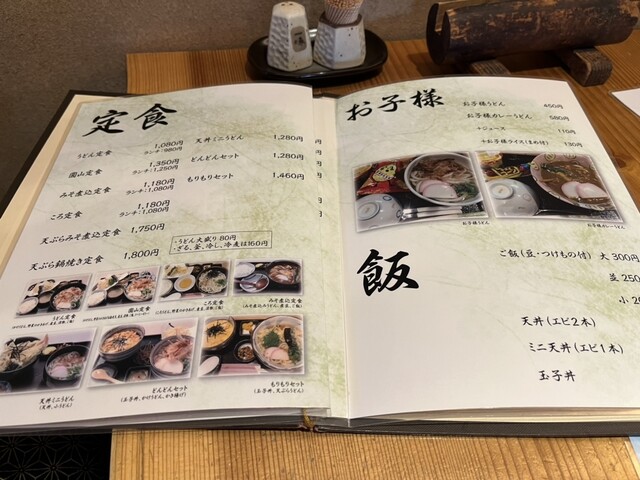 定食
うどん定食 1,080円
ランチ:980円
園山定食 1,350円
ランチ:1,250円
みそ煮込定食 1,180円
ランチ:1,080円
ころ定食 1,180円
ランチ:1,080円
天ぷらみそ煮込定食 1,750円
天ぷら鍋焼き定食 1,800円
天丼ミニうどん 1,280円
どんどんセット 1,280円
もりもりセット 1,460円
・うどん大盛り80円
・ざる、釜、冷し、冷麦は160円
うどん定食
園山定食
ころ定食
みそ煮込定食
(みそ煮込みうどん、赤菜、ご飯)
天丼ミニうどん
(天丼、小うどん)
どんどんセット
(玉子丼、かけうどん、かき揚げ)
もりもりセット
(玉子丼、天ぷらうどん)
お子様
お子様うどん 450円
お子様カレーうどん 580円
+ジュース 110円
+お子様ライス(まめ付) 130円
お子様うどん
お子様カレーうどん
飯
ご飯(豆・つけもの付) 大 300円
並 250
小 2
天丼(エビ2本)
ミニ天丼(エビ1本)
玉子丼